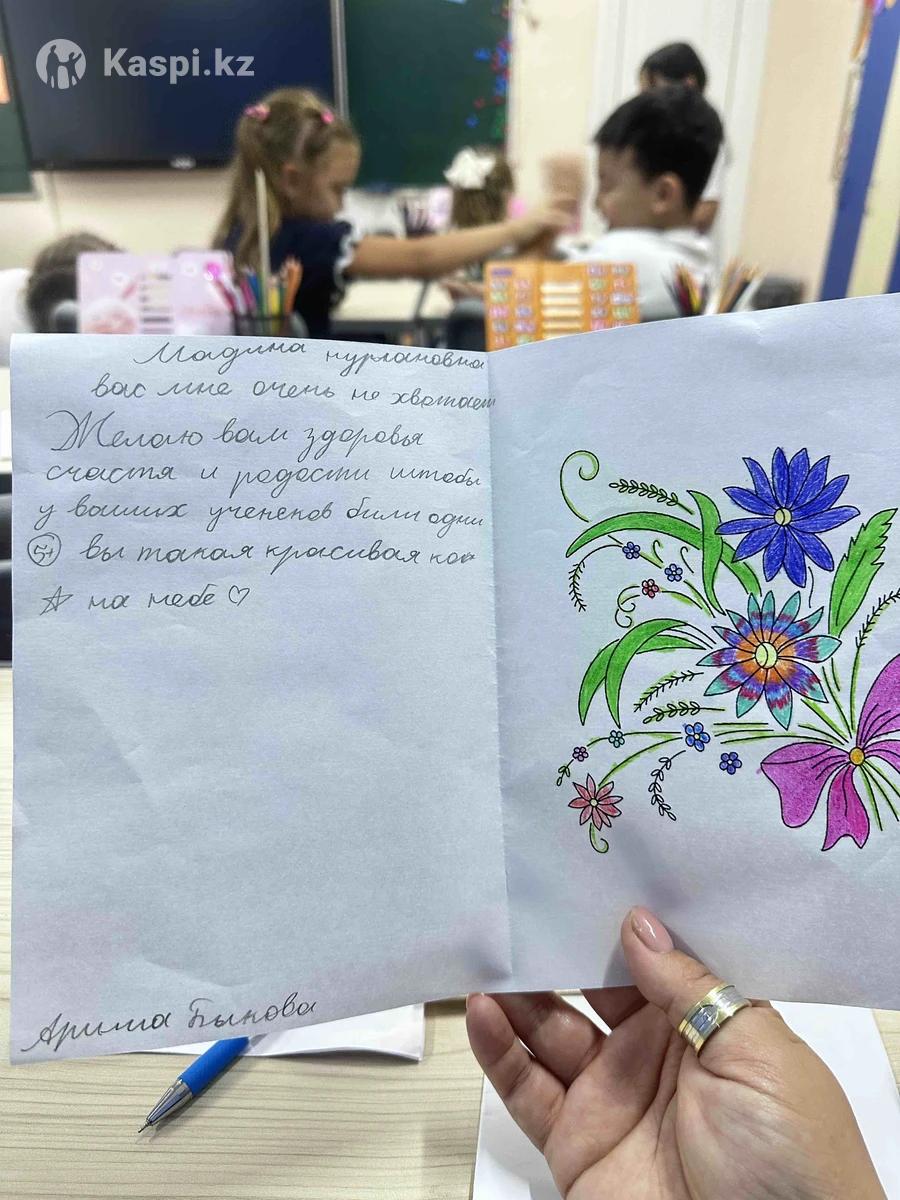 Kaspi.kz
Мадина нурлановна
вас мне очень не хватает
Желаю вам здоровья
счастя и радости штобы
у ваших ученеков били одни
5+ вы такая красивая как
☆ на небе ♡
Арина Быкова